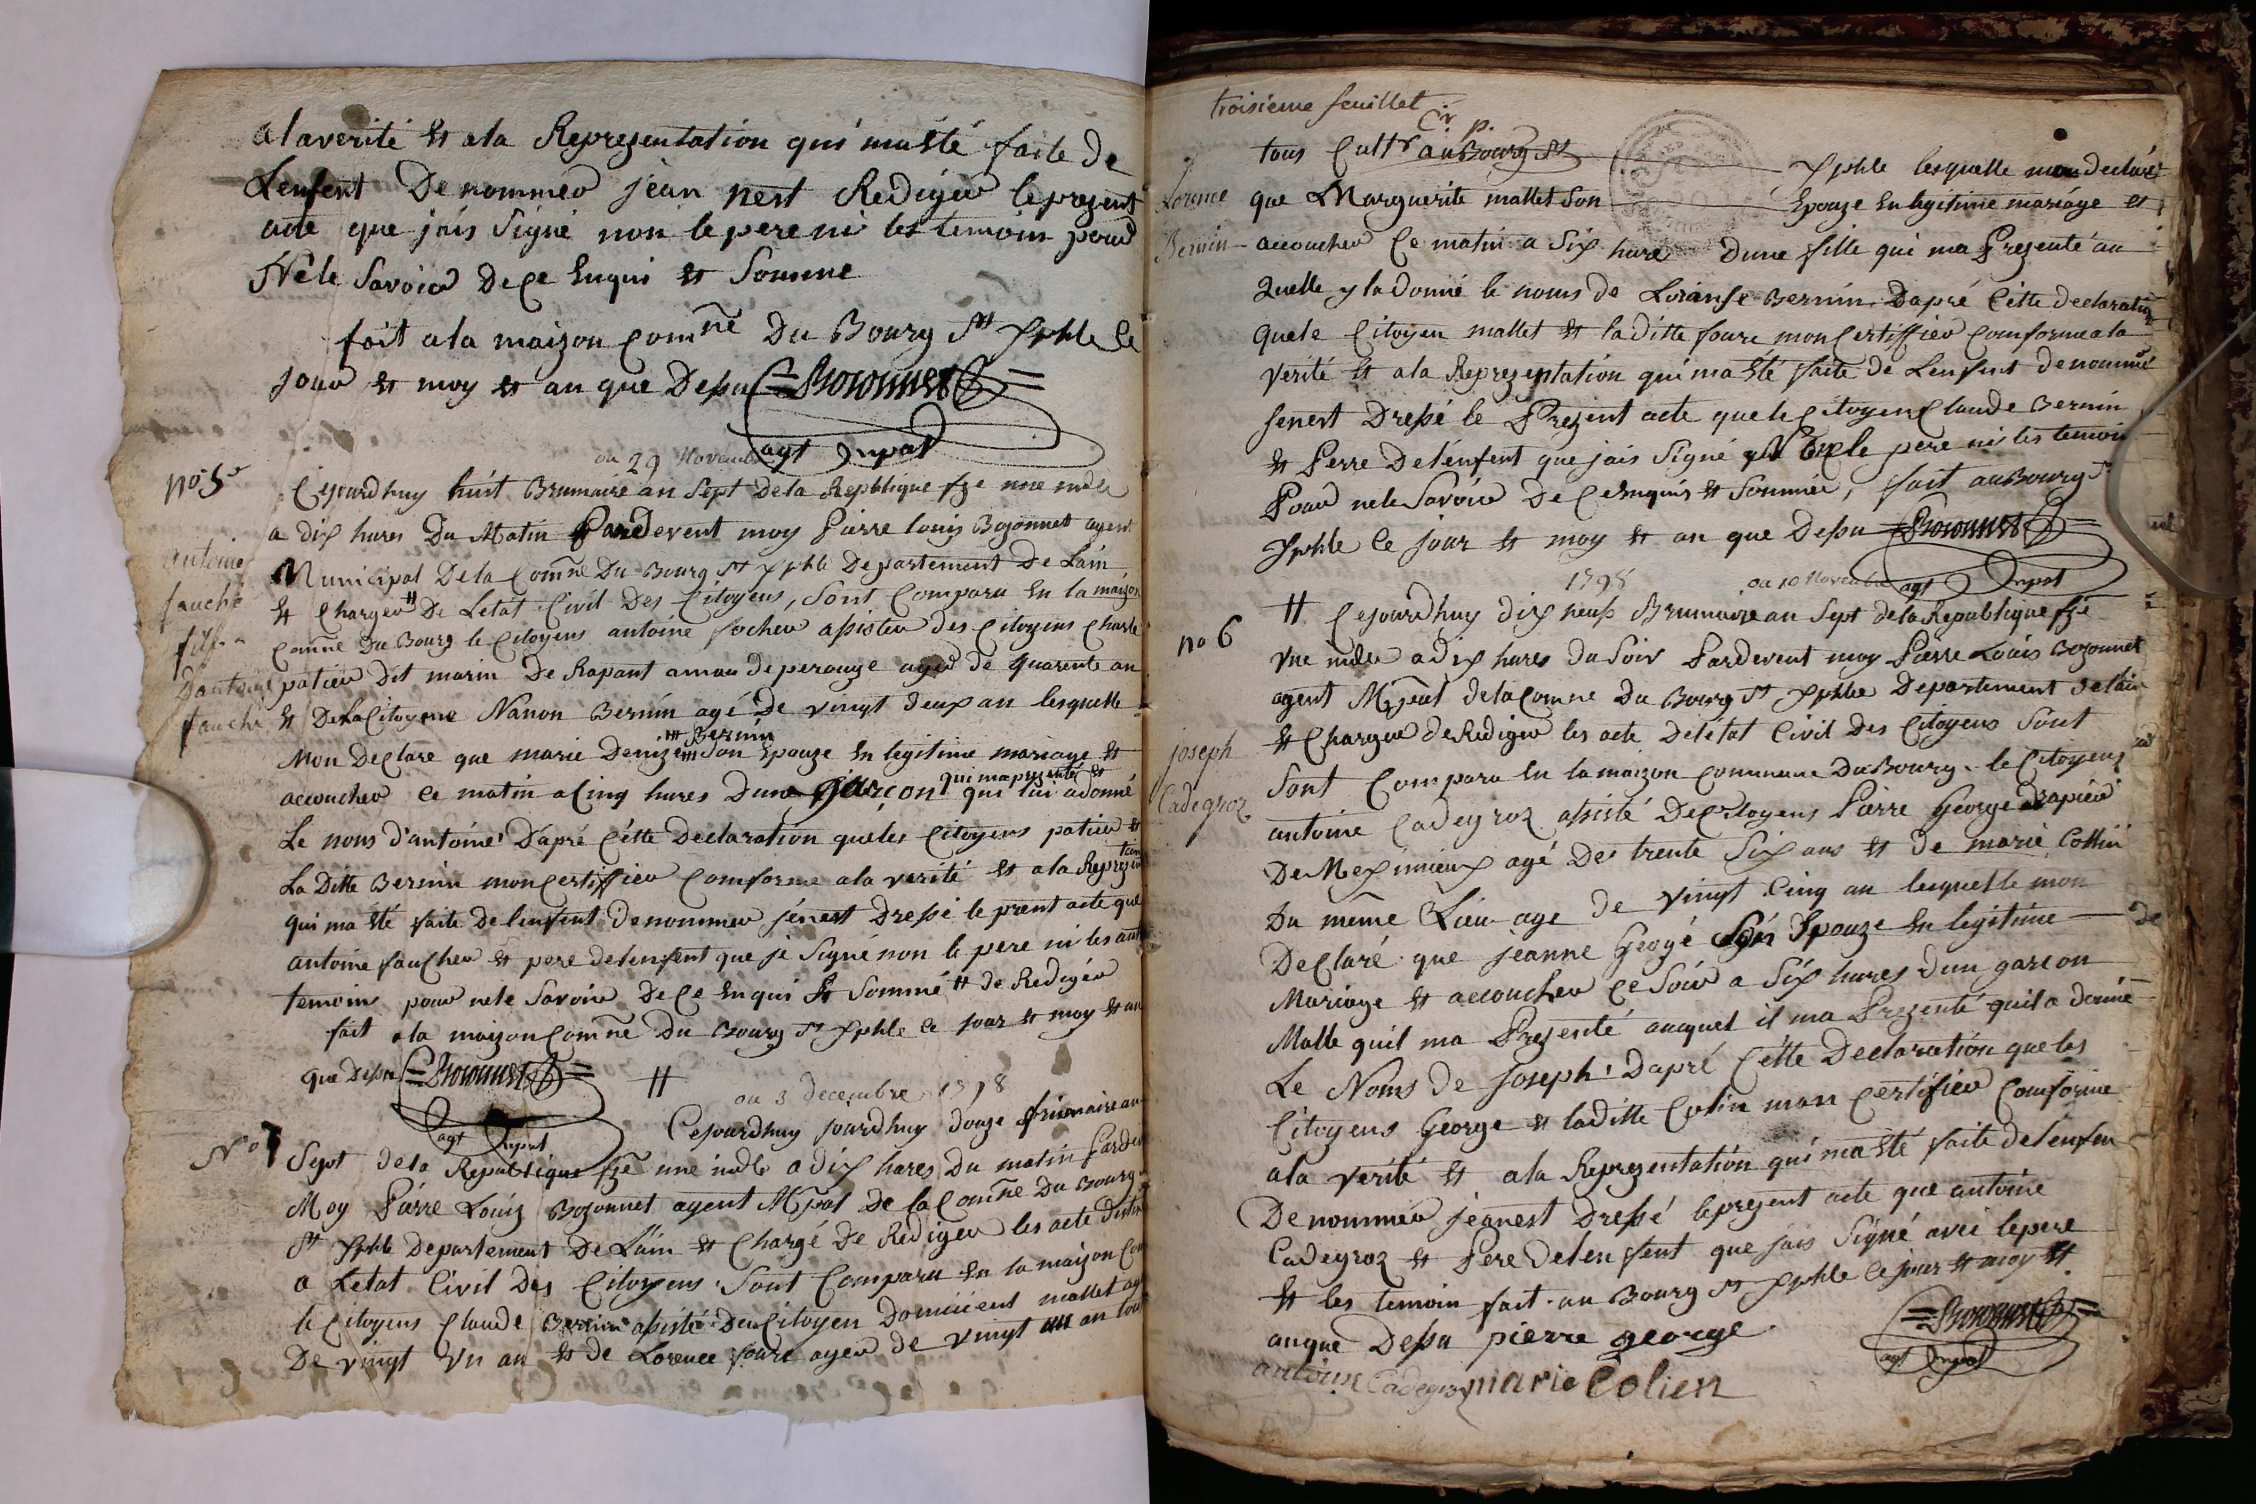 a la verité et a la Reprezentation qui ma été faite de
Lenfent Denommer jean nest Rediger le prezent
acte que jais Signé non le pere ni les temoin pour
Ne le Savoier De Ce Enqui et Somme
fait a la maizon comne Du Bourg St Xphle le
jour et moy et an que Desu Bozonnet
agt mpal
ou 29 Novembre
no 5e
Cejourdhuy huit Brumaire an Sept De la Republique fze une indle
a dix hures Du Matin Pardevent moy Pierre louis Bozonnet agent
Municipal De la Comne Du Bourg St Xphle Departement De Lain
et Charger # De Letat Civil Des Citoyens, Sont Comparu En la maizon
Comne Du Bourg le Citoyens antoine focher asister des Citoyens Charle
patier Dit marin De Rapant amau de perouge ager de quarente an
et De La Citoyene Nanon Bernin agé de vingt deux an lesquelle
antoine
fauche
fils
Dantoine
fauche
Mon Declare que marie Denize Bernin Son Epouze En legitime mariage et
accoucher ce matin a Cinq hures Dune garcon qui ma prezenté et qui lui a donné
Le nous d'antoine D'apré Cette Declaration que les Citoyens patier et
La Ditte Bernin mon Certiffier Comforme a la verité et a la Reprezentation
qui ma été faite de lenfent Denommer jenest Dressé le prent acte que
antoine faucher et pere de lenfent que je Signé non le pere ni les autre
temoin pour ne le Savoire De Ce Enqui Et Sommé # de Rediger
fait a la maizon Comne Du Bourg St Xphle ce jour et moy et an
que Desu Bozonnet
agt mpal
#
ou 3 decembre 1798
No 7
Cejourdhuy jourdhuy douze frimaire an
Sept de la Republique fze une indle a dix hures Du matin Parde
Moy Pierre Louis Bozonnet agent Mpal De la Comne Du Bourg
St Xphle Departement De Lain et Chargé De Rediger les acte
a Letat Civil Des Citoyens Sont Comparu En la maizon Com
le Citoyens Claude Bernin asisté Du Citoyen mallet ag
De vingt un an et de Lorence foure ager de vingt un an tous
troisieme feuillet
tous Cultr au Bourg St Xphle lesquelle mon declaré
Lorence
Bernin
que Marguerite mallet Son Epouze En legitime mariage et
accoucher Ce matin a Six hure Dune fille qui ma Prezenté au
quelle y la donné le nous de Loranse Bernin Dapré Cette declaration
que le Citoyen mallet et la ditte foure mon Certiffier Comforme a la
verité et a la Reprezentation qui ma été faite de Lenfent denommé
jenest Dressé le Prezent acte que le Citoyen Claude Bernin
et Perre De lenfent que jais Signé le pere ni les temoin
Pour ne le Savoire De Ce Enquis et Sommée, fait au Bourg St
Xphle Ce jour et moy et an que Desu Bozonnet
agt mpal
1798 ou 10 Novembre
no 6
# Cejourdhuy dix neuf Brumaire an Sept de la Republique fze
Vne indle a dix hures du Soir Pardevent moy Pierre Louis Bozonnet
agent Mpal de la Comne Du Bourg St Xphle Departement de lain
et Charger de Rediger les acte De létat Civil Des Citoyens Sont
joseph
Cadegroz
Sont Comparu En la maizon Commune Du Bourg le Citoyens
antoine Cadegroz asisté De Citoyens Pierre George drapier
De Meximieux agé De trente Six ans et de marie Cottin
Du même Lieu age de vingt Cinq an lesquelle mon
Declaré que jeanne Geogé Son Epouze En legitime
Mariage et accoucher Ce Soir a Six hures dun garcon
Malle quil ma Prezenté aucquel il ma Prezenté quil a donné
Le Noms de joseph Dapré Cette Declaration que les
Citoyens George et la ditte Cotin mon Certifier Comforme
a la verité et a la Reprezentation qui ma été faite de lenfen
Denommer jeanest Dressé le prezent acte que antoine
Cadegroz et Pere de len fent que jais Signé avec le pere
et les temoin fait au Bourg St Xphle Ce jour et moy et
an que Desu pierre george
Bozonnet
agt mpal
antoine Cadegroz marie Colien